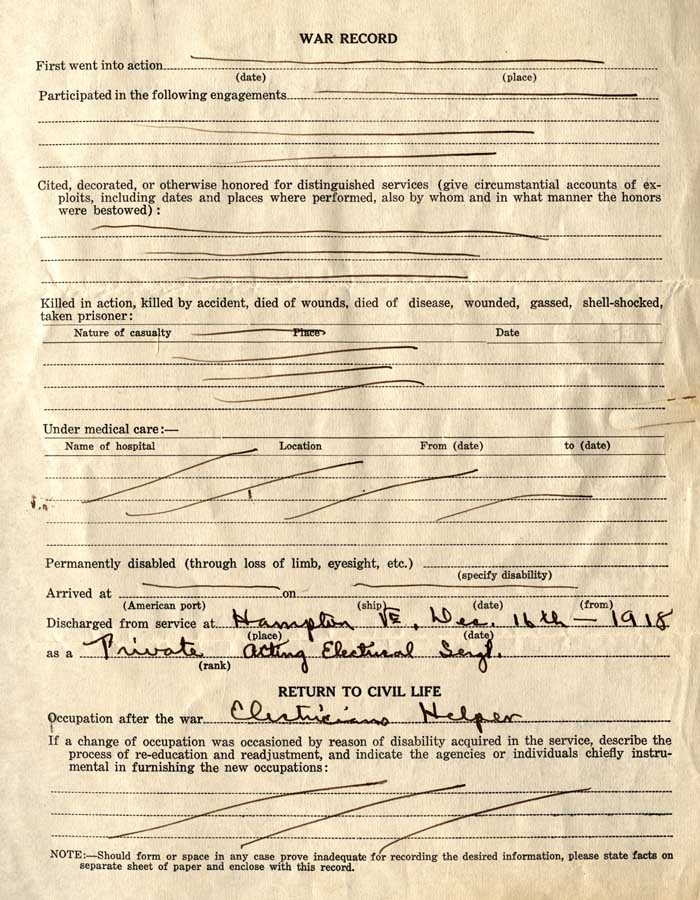 WAR RECORD
First went into action
(date) (place)
Participated in the following engagements
Cited, decorated, or otherwise honored for distinguished services (give circumstantial accounts of ex-
ploits, including dates and places where performed, also by whom and in what manner the honors
were bestowed) :
Killed in action, killed by accident, died of wounds, died of disease, wounded, gassed, shell-shocked,
taken prisoner:
Nature of casualty Place Date
Under medical care:—
Name of hospital Location From (date) to (date)
Permanently disabled (through loss of limb, eyesight, etc.)
(specify disability)
Arrived at on
(American port) (ship) (date) (from)
Discharged from service at Hampton Va, Dec. 16th — 1918
(place) (date)
as a Private Acting Electrical Sergt.
(rank)
RETURN TO CIVIL LIFE
Occupation after the war Electricians Helper
If a change of occupation was occasioned by reason of disability acquired in the service, describe the
process of re-education and readjustment, and indicate the agencies or individuals chiefly instru-
mental in furnishing the new occupations:
NOTE:—Should form or space in any case prove inadequate for recording the desired information, please state facts on
separate sheet of paper and enclose with this record.